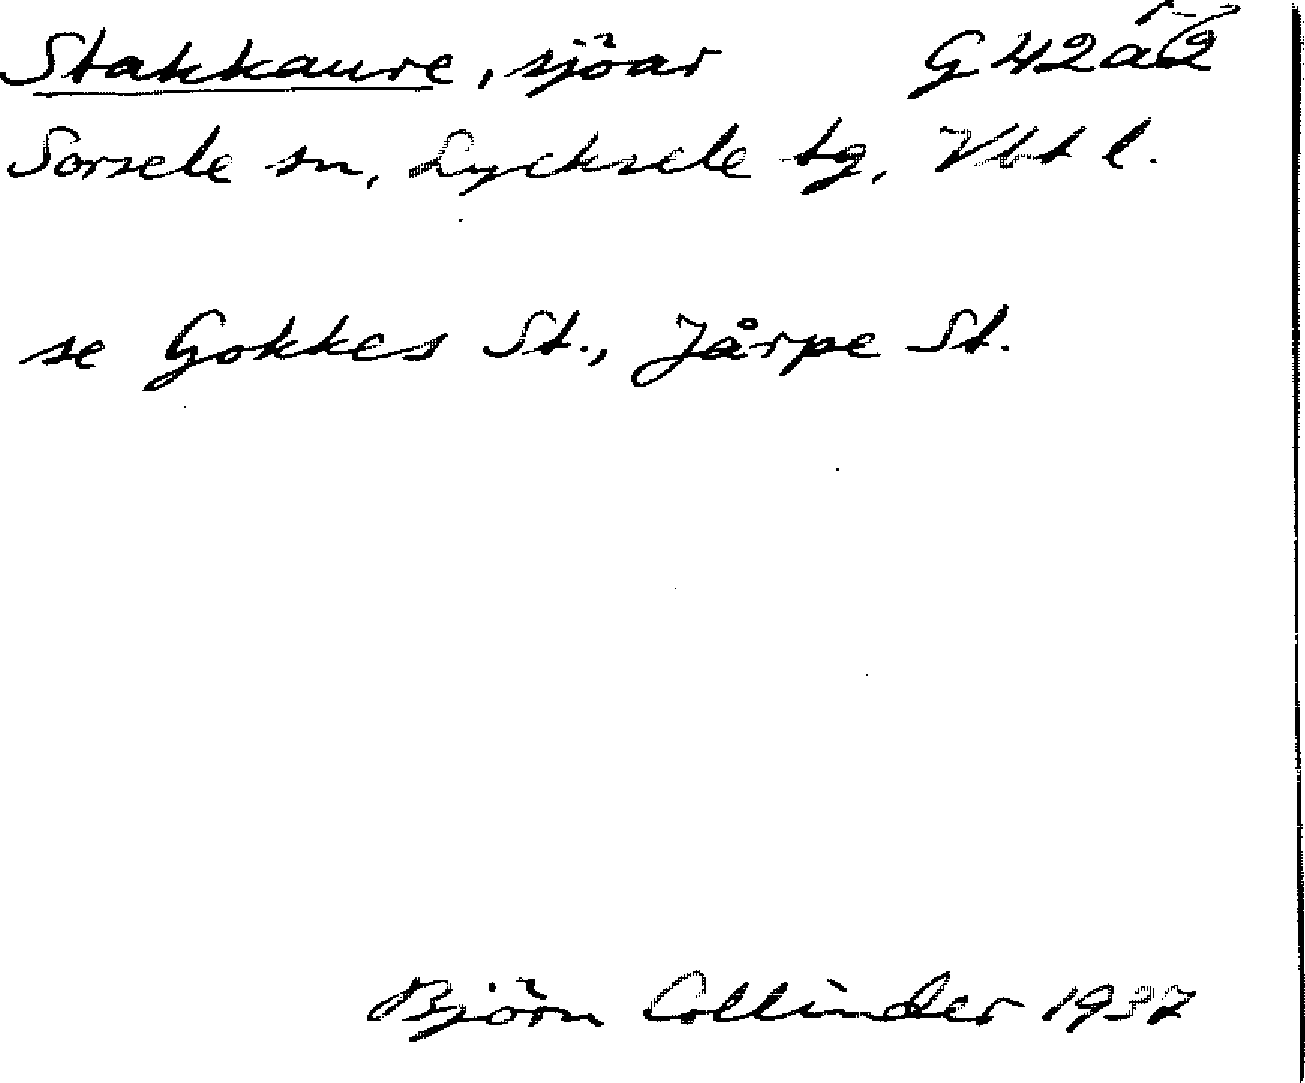 Stakkaure, sjöar G 42 a 2
Sorsele sn, Lycksele tg, Vbt l.
se Gokkes St., Jårpe St.
Björn Collinder 1937